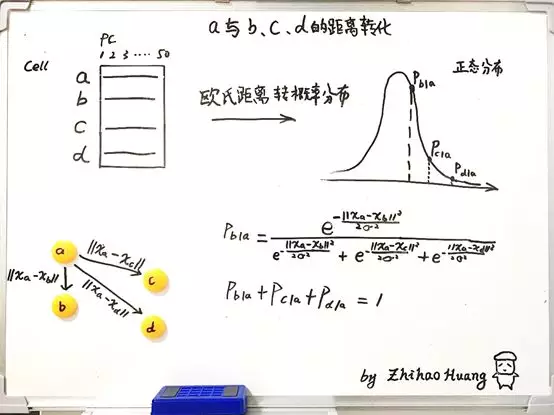 a与b、c、d的距离转化
PC
1 2 3 ···· 50
Cell
a
b
c
d
欧氏距离转概率分布
正态分布
P_{b|a}
P_{c|a}
P_{d|a}
a
||x_a-x_c||
||x_a-x_b||
||x_a-x_d||
c
b
d
P_{b|a} = \frac{e^{-\frac{||x_a-x_b||^2}{2σ^2}}}{e^{-\frac{||x_a-x_b||^2}{2σ^2}} + e^{-\frac{||x_a-x_c||^2}{2σ^2}} + e^{-\frac{||x_a-x_d||^2}{2σ^2}}}
P_{b|a}+P_{c|a}+P_{d|a} = 1
by Zhihao Huang